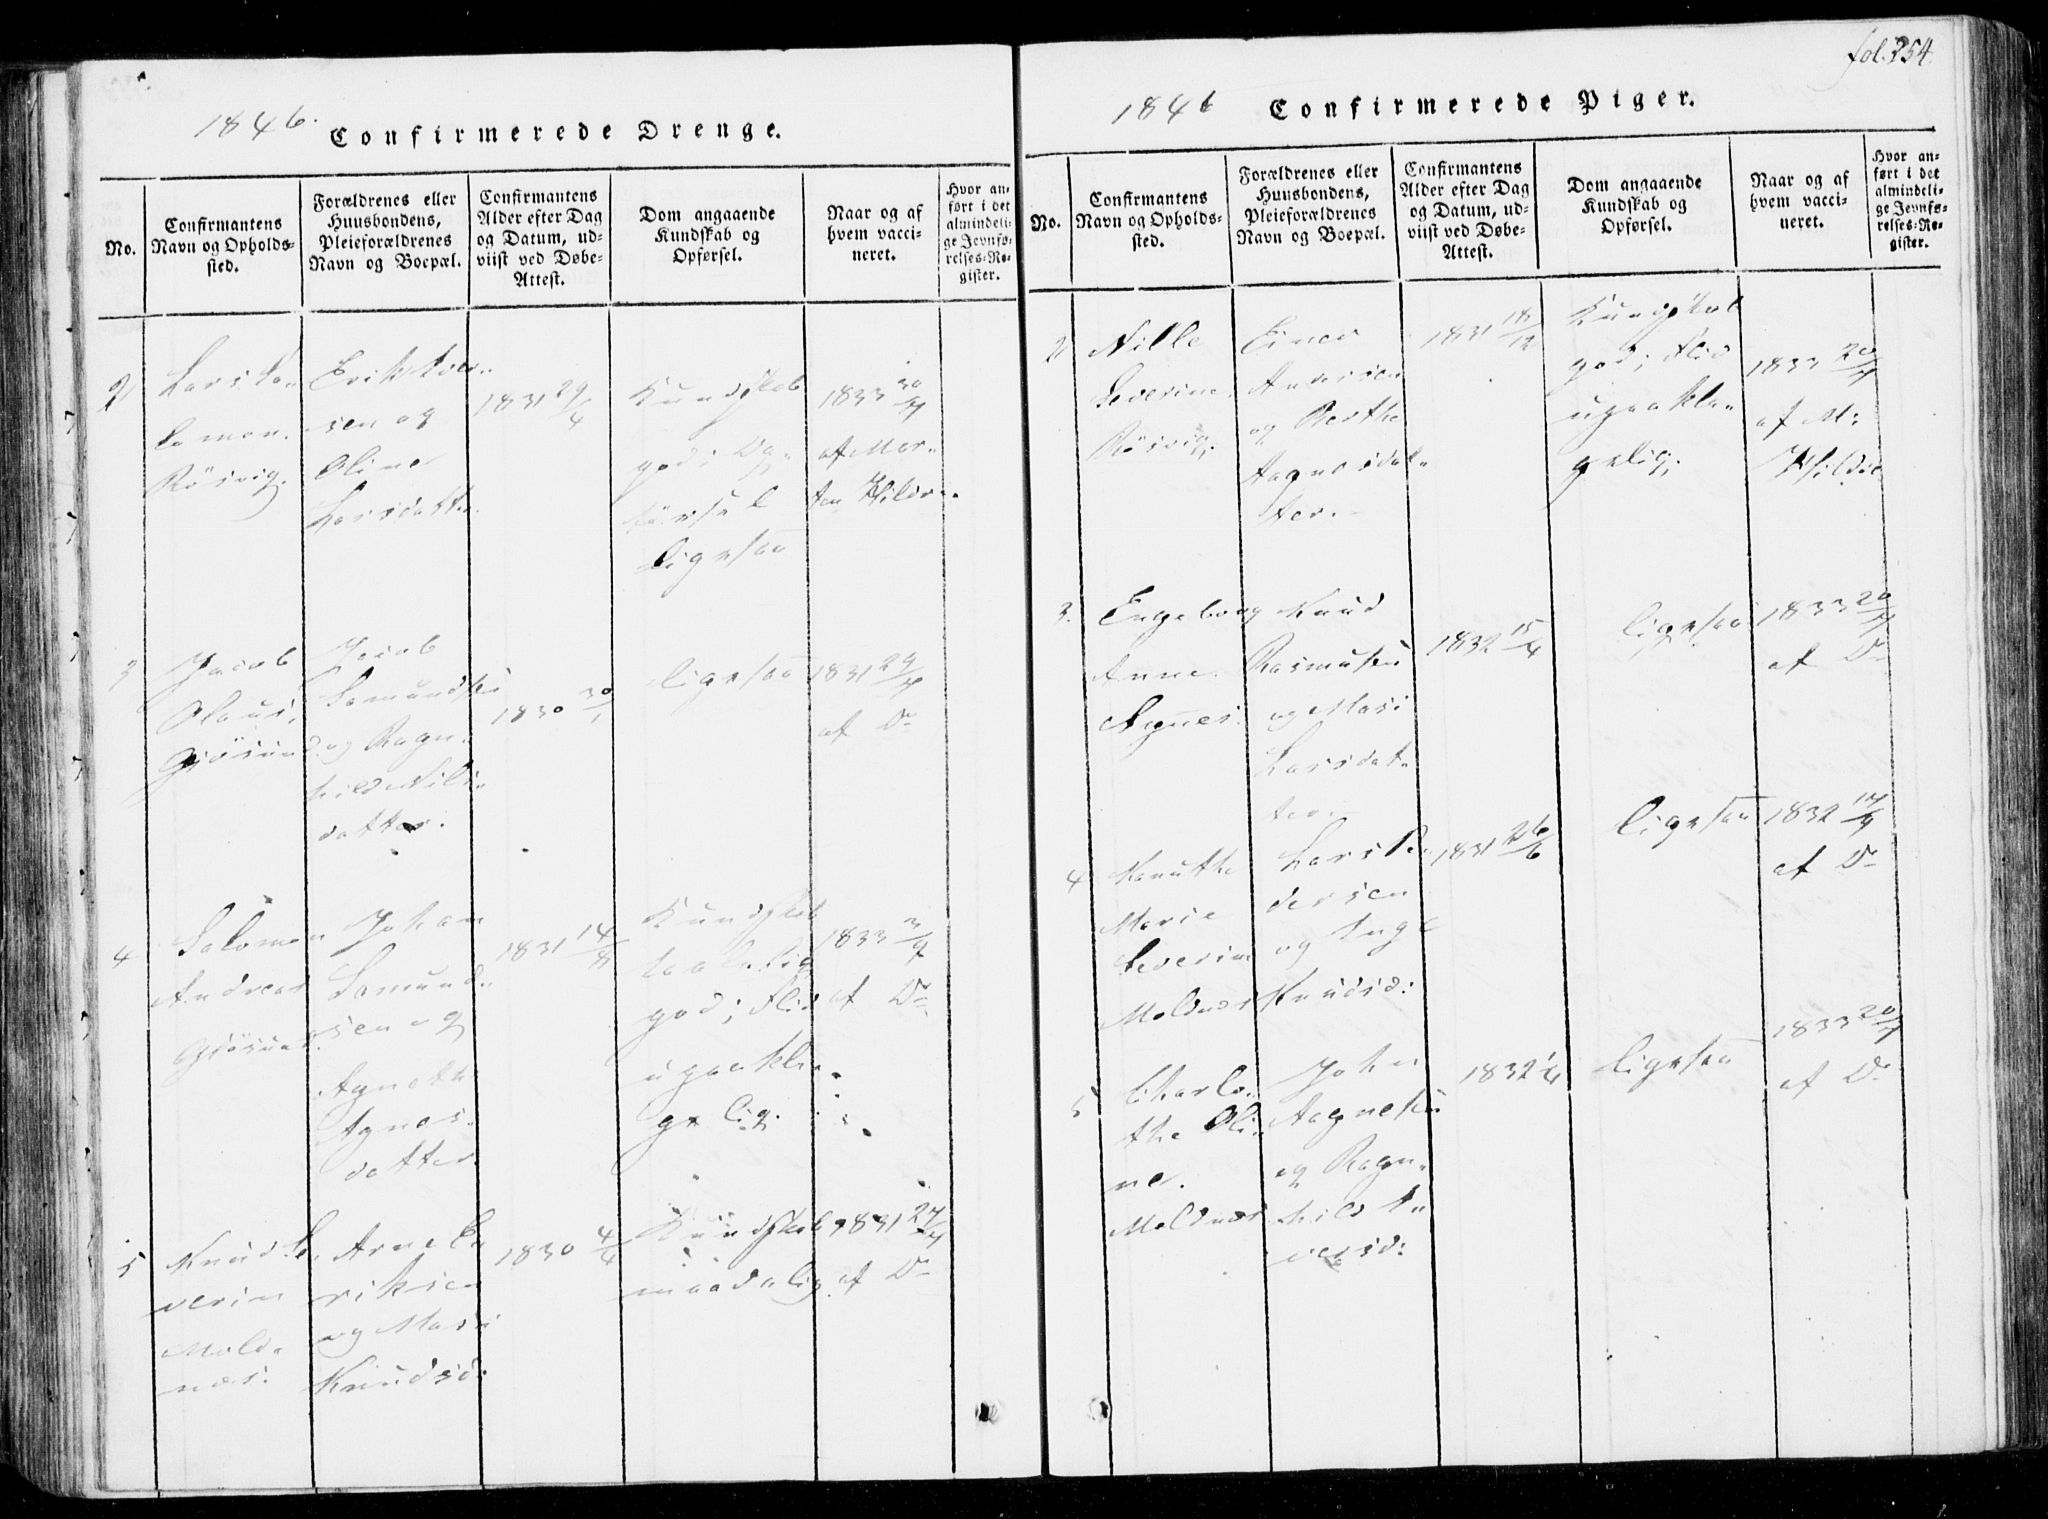 fol. 254.
1846.
Confirmerede Drenge.
No.
Confirmantens
Navn og Opholds-
sted.
Forældrenes eller
Huusbondens,
Pleieforældrenes
Navn og Boepæl.
Confirmantens
Alder efter Dag
og Datum, ud-
viist ved Døbe-
Attest.
Dom angaaende
Kundskab og
Opførsel.
Naar og af
hvem vacci-
neret.
Hvor an-
ført i det
almindeli-
ge Jevnfø-
relses-Re-
gister.
2
Lars Sa-
lomon.
Rösvig.
Erik Iver-
sen og
Oline
Larsdatter
1831 29/4
Kundskab
god; Op-
førsel
ligesaa
1833
af Mor-
ten Hildre
3
Jacob
Olaus,
Gjösund
Jacob
Samundsen
og Ragn-
hild Nils-
datter.
1830 30/1
ligesaa
1831
af Do
4
Salomon
Andreas
Gjösund.
Johan
Samund-
sen og
Agnethe
Agnes-
datter.
1831
Kundskab
taalelig
god; Flid
upaakla-
gelig.
1833
af Do
5
Knud Se-
verin
Mold-
næs.
Arne E-
riksen
og Masi
Knudsd:
1830 4/4
Kundskab
maadelig
1831
af Do
1846
Confirmerede Piger.
No.
Confirmantens
Navn og Opholds-
sted.
Forældrenes eller
Huusbondens,
Pleieforældrenes
Navn og Boepæl.
Confirmantens
Alder efter Dag
og Datum, ud-
viist ved Døbe-
Attest.
Dom angaaende
Kundskab og
Opførsel.
Naar og af
hvem vacci-
neret.
Hvor an-
ført i det
almindeli-
ge Jevnfø-
relses-Re-
gister.
2
Nille
Severine.
Rösvig.
Einer
Andersen
og Berthe
Aagnesdat-
ter.
1831 18/12
Kundskab
god; Flid
upaakla-
gelig.
1833
af M:
Hildre
3.
Engeborg
Anne
Agnes.
Knud
Rasmusen
og Masi
Larsdat-
ter.
1832 15/4
ligesaa
1833
af Do
4
Knuthe
Marie
Severine
Moldnæs
Lars Pe-
dersen
og Inge
Knudsd:
1831 26/6
ligesaa
1832
af Do
5
Charlo-
the Oli-
ne.
Moldnæs
John
Aagnesen
og Ragn-
hild I-
versd:
1832
ligesaa
1833
af Do